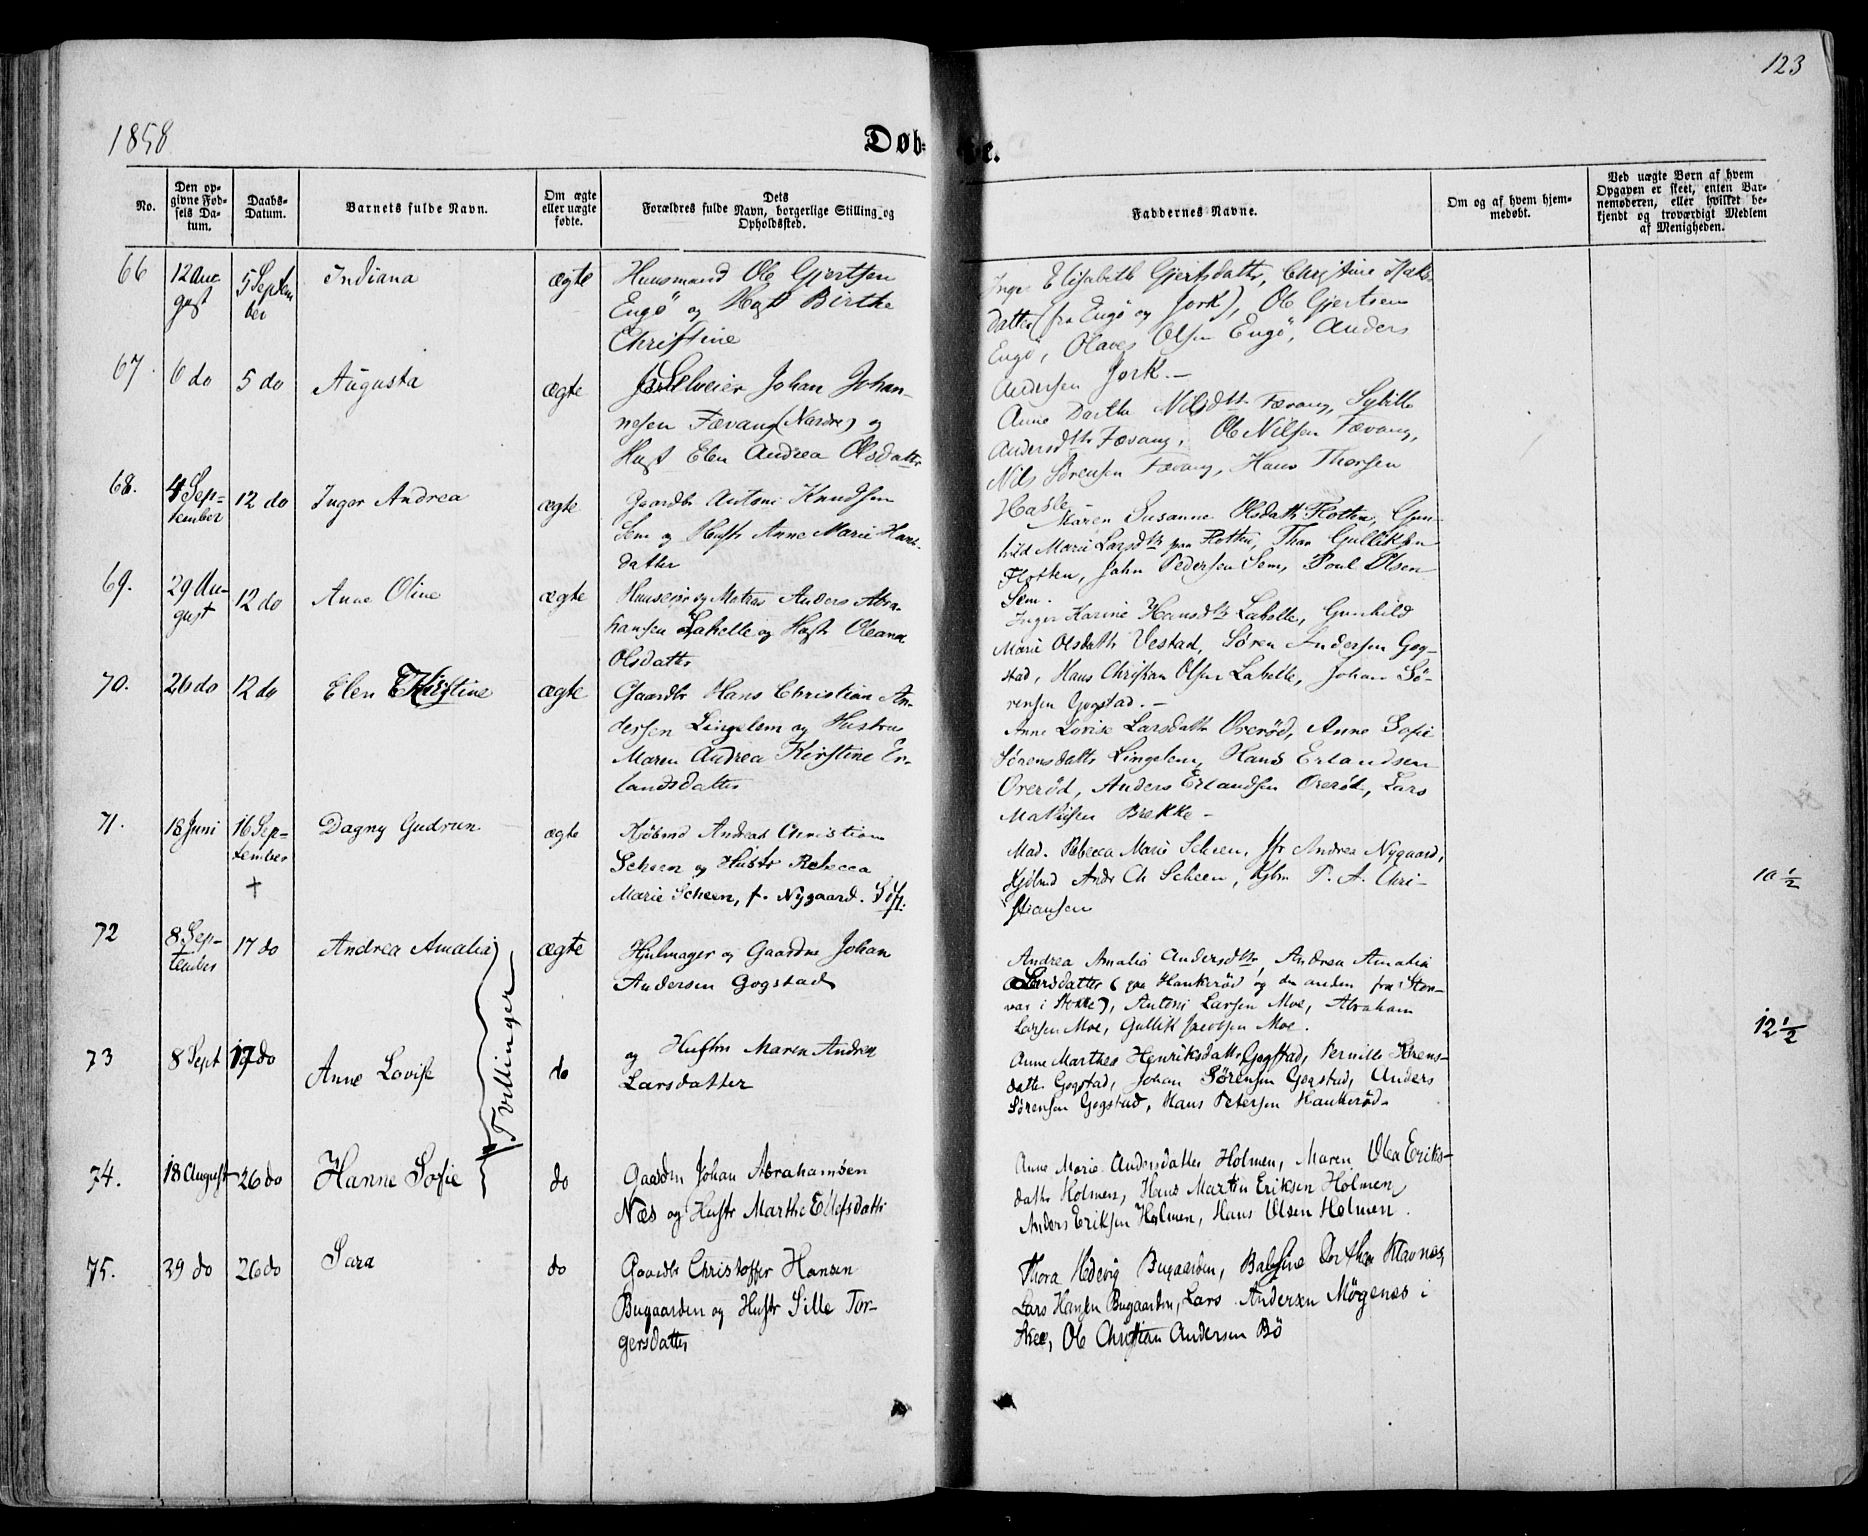 123
1858
Døb-
te.
No.
Den op-
givne Fød-
sels Da-
tum.
Daabs-
Datum.
Barnets fulde Navn.
Om ægte
eller uægte
fødte.
Dets
Forældres fulde Navn, borgerlige Stilling og
Opholdssted.
Faddernes Navne.
Om og af hvem hjem-
medøbt.
Ved uægte Børn af hvem
Opgaven er skeet, enten Bar-
nemoderen, eller hvilket be-
kjendt og troværdigt Medlem
af Menigheden.
66
12 Au-
gust
5 Septem
ber
Indiana
ægte
Huusmand Ole Gjertsen
Engö og Hust Birthe
Christine
Inger Elisabeth Gjertsdatter, Christine
datter (fra Engö og Jork), Ole Gjertsen
Engö, Olaves Olsen Engö, Anders
Andersen Jork. —
67.
6 do
5 do
Augusta
ægte
Selveier Johan Johan-
nesen Fævang (Nordre) og
Hust Elen Andrea Olsdatter
Anne Dorthe Nilsdtr Fævang, Sybille
Andersdtr Fævang, Ole Nilsen Fævang,
Nils Sörensen Fævang, Hans Thorsen
Hasle
68.
4 Sep-
tember
12 do
Inger Andrea
ægte
Gaardbr Antoni Knudsen
Sem og Hustr Anne Marie Hans-
datter
Maren Susanne Olsdattr Flotten, Gun-
hild Marie Larsdtr paa Flotten, Thor Gulliksen
Flotten, John Pedersen Sem, Poul Olsen
Sem.
69.
29 Au-
gust
12 do
Anne Oline
ægte
Huuseier og Matros Anders Abra-
hamsen Lahelle og Hustr Oleana
Olsdatter
Inger Karine Hansdtr Lahelle, Gunhild
Marie Olsdattr Vestad, Søren Andersen Gog-
stad, Hans Christian Olsen Lahelle, Johan Sö-
rensen Gogstad. —
70.
26 do
12 do
Elen Kirstine
ægte
Gaardbr Hans Christian An-
dersen Lingelem og Hustru
Maren Andrea Kirstine Er-
landsdatter
Anne Lovise Larsdattr Overød, Anne Sofie
Sørensdattr Lingelem, Hans Erlandsen
Overød, Anders Erlandsen Overød, Lars
Mathisen Bekke —
71.
18 Juni
16 Sep-
tember
+
Dagny Gudrun
ægte
Kjöbmd Andreas Christian
Scheen og Hustr Rebecca
Marie Scheen, f. Nygaard.
Mad. Rebecca Marie Scheen, Jfr Andrea Nygaard,
Kjöbmd Andr Ch Scheen, Kjbm P. A. Chri-
stiansen
10 1/2
72
8 Sep-
tember
17 do
Andrea Amalia
ægte
Hjulmager og Gaardm Johan
Andersen Gogstad
Andrea Amalia Andersdtr, Andrea Amalia
Larsdatter (paa Haukerød og den anden fra Stor-
var i Stokke), Antoni Larsen Moe, Abraham
Larsen Moe, Gullik Jacobsen Moe.
12 1/2
Tvillinger
73
8 Sept
17 do
Anne Lovise
do
og Hustru Maren Andrea
Larsdatter
Anne Marthea Henriksdattr Gogstad, Pernille Sörens-
datter Gogstad, Johan Sørensen Gogstad, Anders
Sørensen Gogstad, Hans Petersen Haukerød.
74.
18 August
26 do
Hanne Sofie
do
Gaardm Johan Abrahamsen
Næs og Hustr Marthe Ellefsdattr
Anne Marie Andersdatter Holmen, Maren Olea Eriks-
dattr Holmen, Hans Martin Eriksen Holmen,
Anders Eriksen Holmen, Hans Olsen Holmen.
75.
29 do
26 do
Sara
do
Gaardbr Christoffer Hansen
Bugaarden og Hustr Sille Tor-
gersdatter
Thora Hedevig Bugaarden, Dorthea Klavnæs,
Lars Hansen Bugaarden, Lars Andersen Mögenes i
Ole Christian Andersen Bö